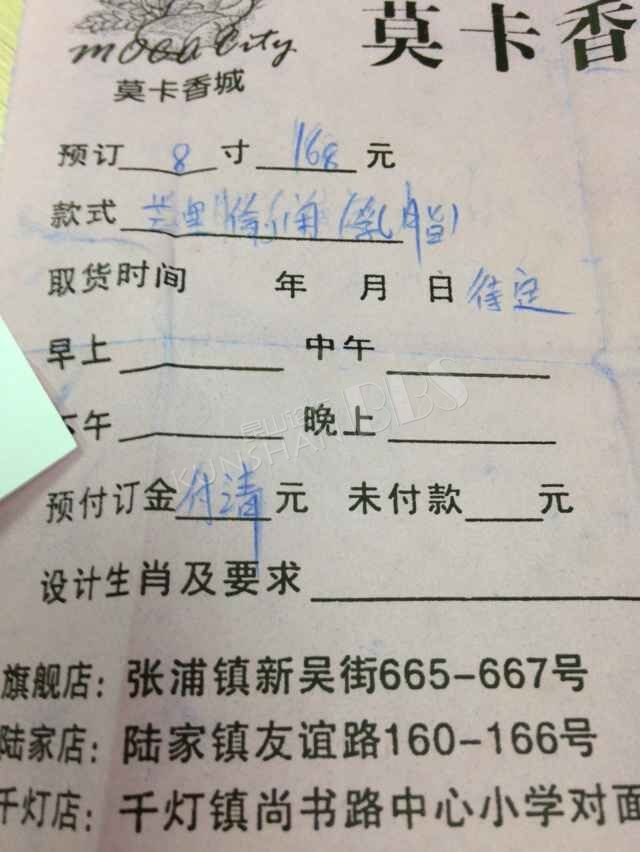 moca city
莫卡香城
莫卡香
预订 8 寸 168 元
款式 芒果 (乳脂)
取货时间 年 月 日 待定
早上 中午
下午 晚上
KUNSHAN BBS
预付订金 付清 元 未付款 元
设计生肖及要求
旗舰店：张浦镇新吴街665-667号
陆家店：陆家镇友谊路160-166号
千灯店：千灯镇尚书路中心小学对面